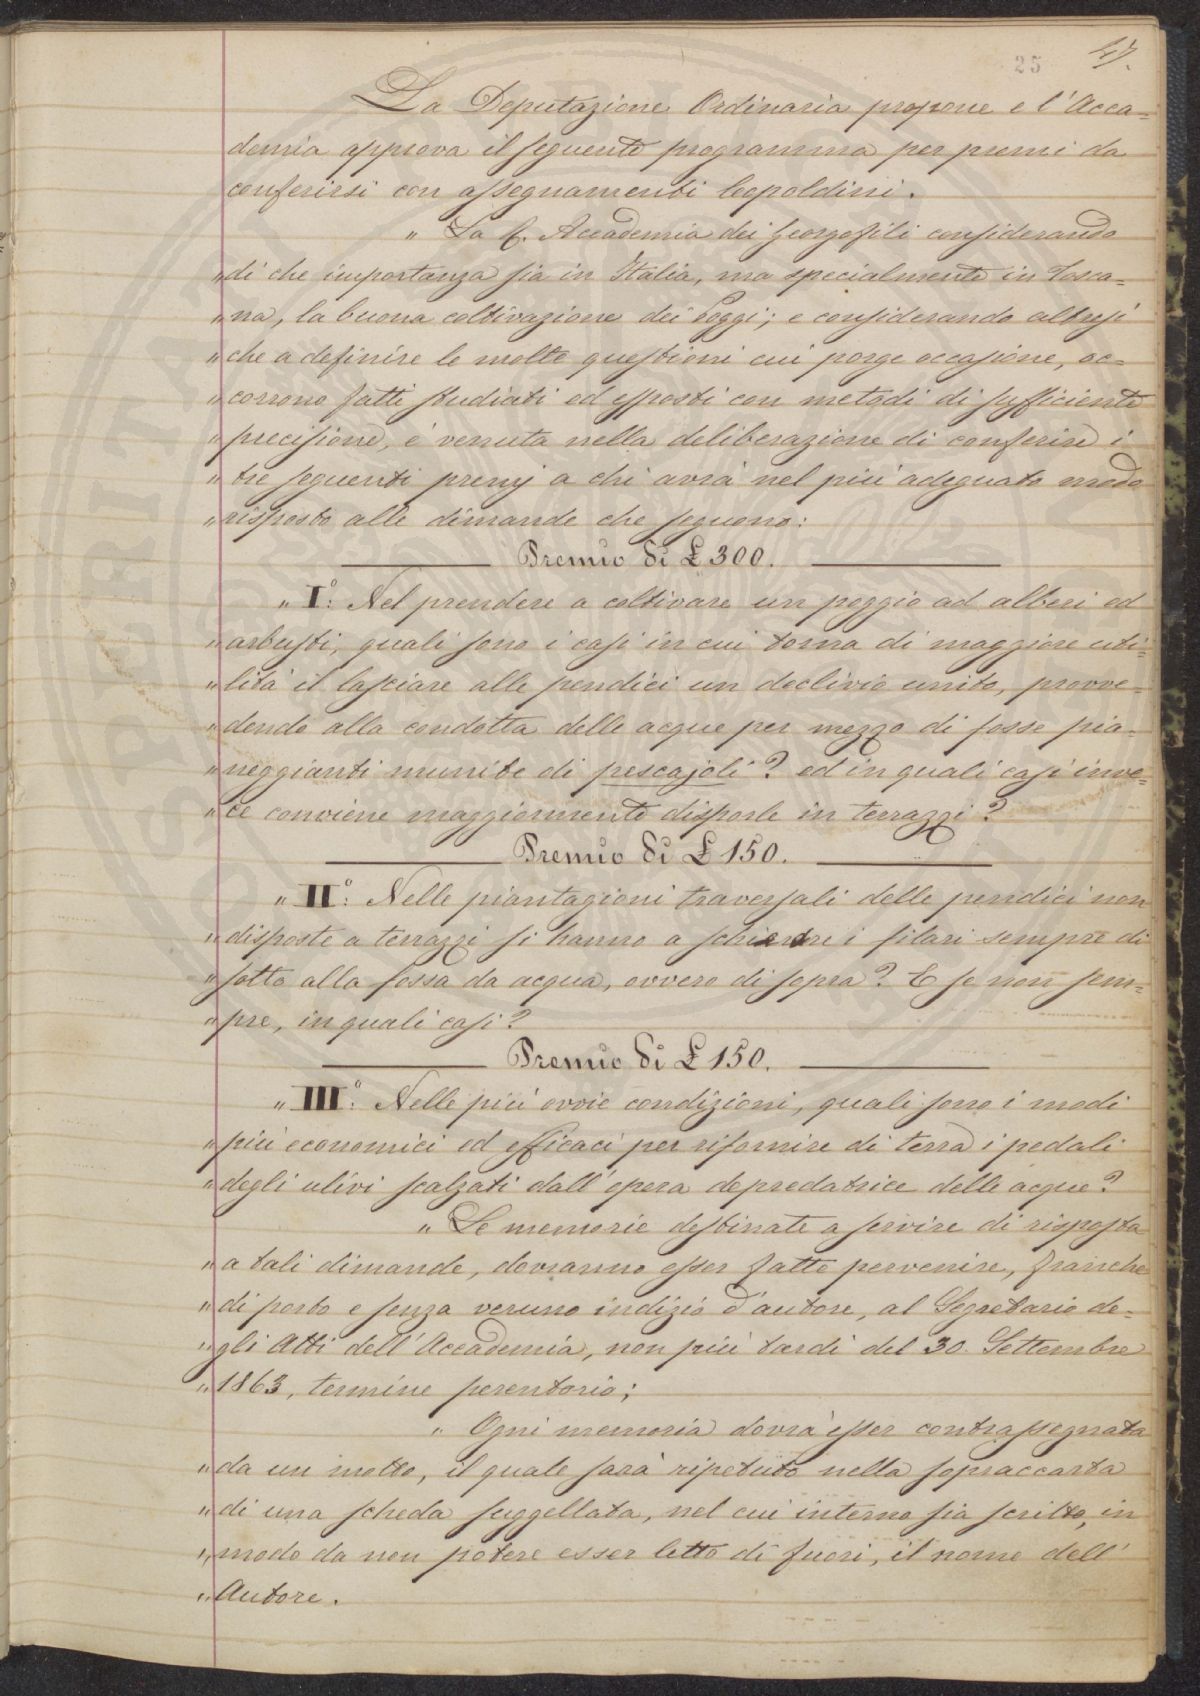 25 47.
La Deputazione Ordinaria propone e l'Acca-
demia approva il seguente programma per premi da
conferirsi con assegnamenti leopoldini.
" La R. Accademia dei Georgofili considerando
" di che importanza sia in Italia, ma specialmente in Tosca-
" na, la buona coltivazione dei Poggi; e considerando altresì
" che a definire le molte questioni cui porge occasione, oc-
" corrono fatti studiati ed esposti con metodi di sufficiente
" precisione, è venuta nella deliberazione di conferire i
" tre seguenti premj a chi avrà nel più adeguato modo
" risposto alle dimande che seguono:
Premio di £ 300.
" I°: Nel prendere a coltivare un poggio ad alberi ed
" arbusti, quali sono i casi in cui torna di maggiore uti-
" lità il lasciare alle pendici un declivio unito, provve-
" dendo alla condotta delle acque per mezzo di fosse pia-
" neggianti munite di pescajoli? ed in quali casi inve-
" ce conviene maggiormente disporle in terrazzi?
Premio di £ 150.
" II°: Nelle piantagioni traversali delle pendici non
" disposte a terrazzi si hanno a schierare i filari sempre di
" sotto alla fossa da acqua, ovvero di sopra? E se non sem-
" pre, in quali casi?
Premio di £ 150.
" III°: Nelle più ovvie condizioni, quali sono i modi
" più economici ed efficaci per rifornire di terra i pedali
" degli ulivi scalzati dall'opera depredatrice delle acque?
" Le memorie destinate a servire di risposta
" a tali dimande, dovranno esser fatte pervenire, franche
" di porto e senza veruno indizio d'autore, al Segretario de-
" gli Atti dell'Accademia, non più tardi del 30. Settembre
" 1863, termine perentorio;
" Ogni memoria dovrà esser contrassegnata
" da un motto, il quale sarà ripetuto nella sopraccarta
" di una scheda suggellata, nel cui interno sia scritto, in
" modo da non potere esser letto di fuori, il nome dell'
" Autore.